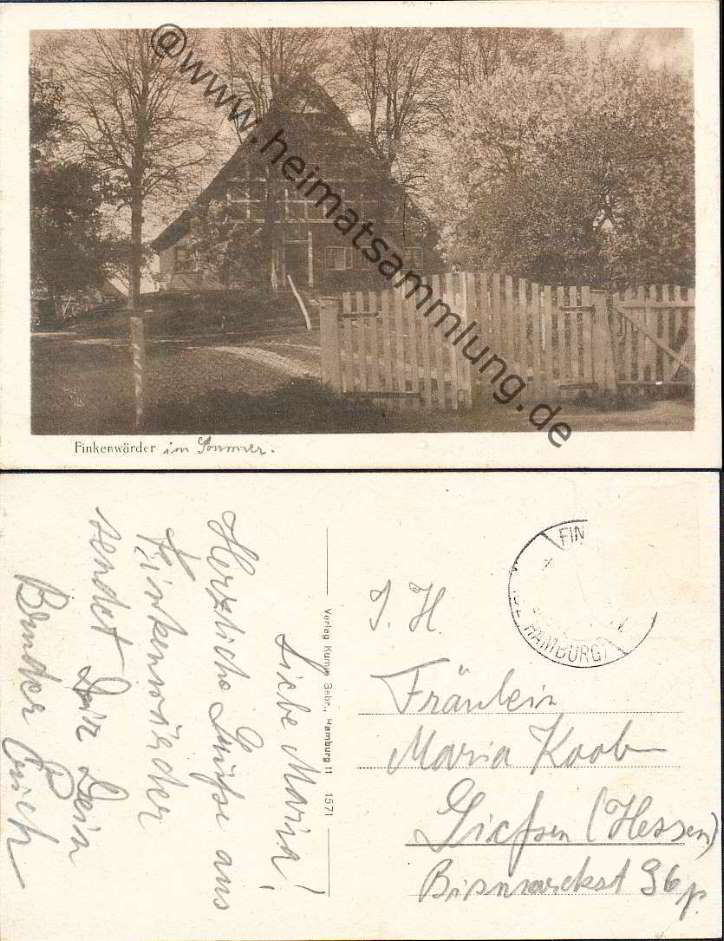 @www.heimatsammlung.de
Finkenwärder im Sommer.
Liebe Maria!
Herzliche Grüße aus
Finkenwärder
sendet Dir Dein
Bruder Erich
Verlag Kumm Gebr., Hamburg 11 1571
FIN
HAMBURG)
I. H.
Fräulein
Maria Koob
Giessen (Hessen)
Bismarckst 36 p.